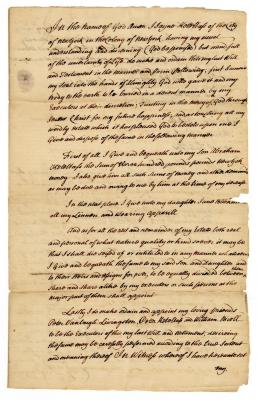 In the Name of God Amen I
of the City
of New York in the Colony of New York having my usual
understanding and memory (God be praised) but mindful
of the uncertainty of Life do make and ordain this my last Will
and Testament in the manner and form following, first I commit
my Soul into the hands of Almighty God who gave it and my
body to the earth to be buried in a decent manner by my
Executors at their discretion; Trusting in the mercy of God through
Christ for my future happiness; and as touching all my
worldly estate which it has pleased God to bestow upon me I
Give and dispose of the same in the following manner
First of all I Give and bequeath unto my Son Abraham
the Sum of three hundred pounds New York
money I also give him all such sums of money and
as may be due and owing to me by him at the time of my decease
In the next place I Give unto my daughter
all my Linnen and wearing apparell
And as for all the rest and remainder of my Estate both real
and personal of what nature quality or kind soever, it may be
that I shall die seized of or entitled to in any manner whatsoever
I Give and bequeath the same to my said Son and Daughter and
to their Heirs and Assigns for ever, to be equally divided between them
share and share alike by my executors or such persons as the
major part of them shall appoint
Lastly I do make ordain and appoint my loving friends
Peter Vanbrugh Livingston,
to be the Executors of this my last Will and testament, desiring
the same may be carefully performed according to the true Intent
and meaning thereof In Witness whereof I have hereunto set
my